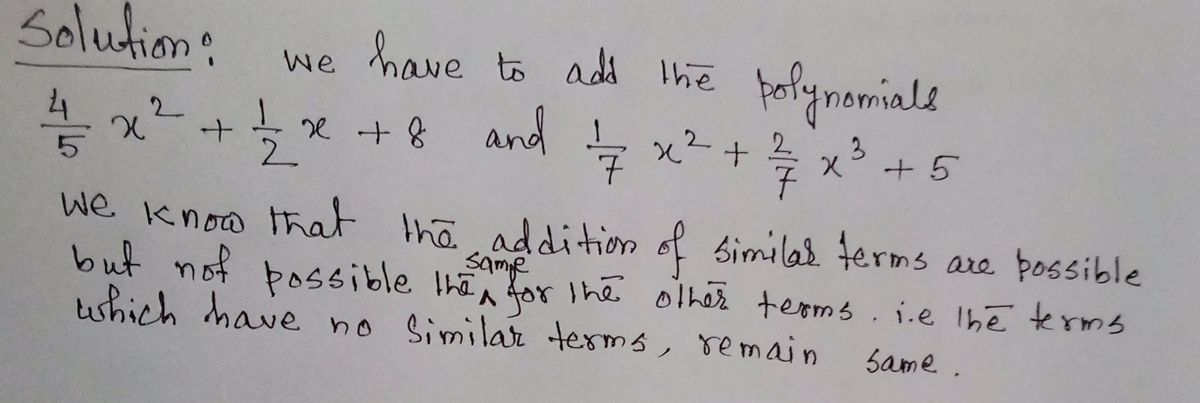 Solution: we have to add the polynomials
4/5 x² + 1/2 x + 8 and 1/7 x² + 2/7 x³ + 5
we know that the addition of similar terms are possible
but not possible the same for the other terms. i.e the terms
which have no similar terms, remain same.